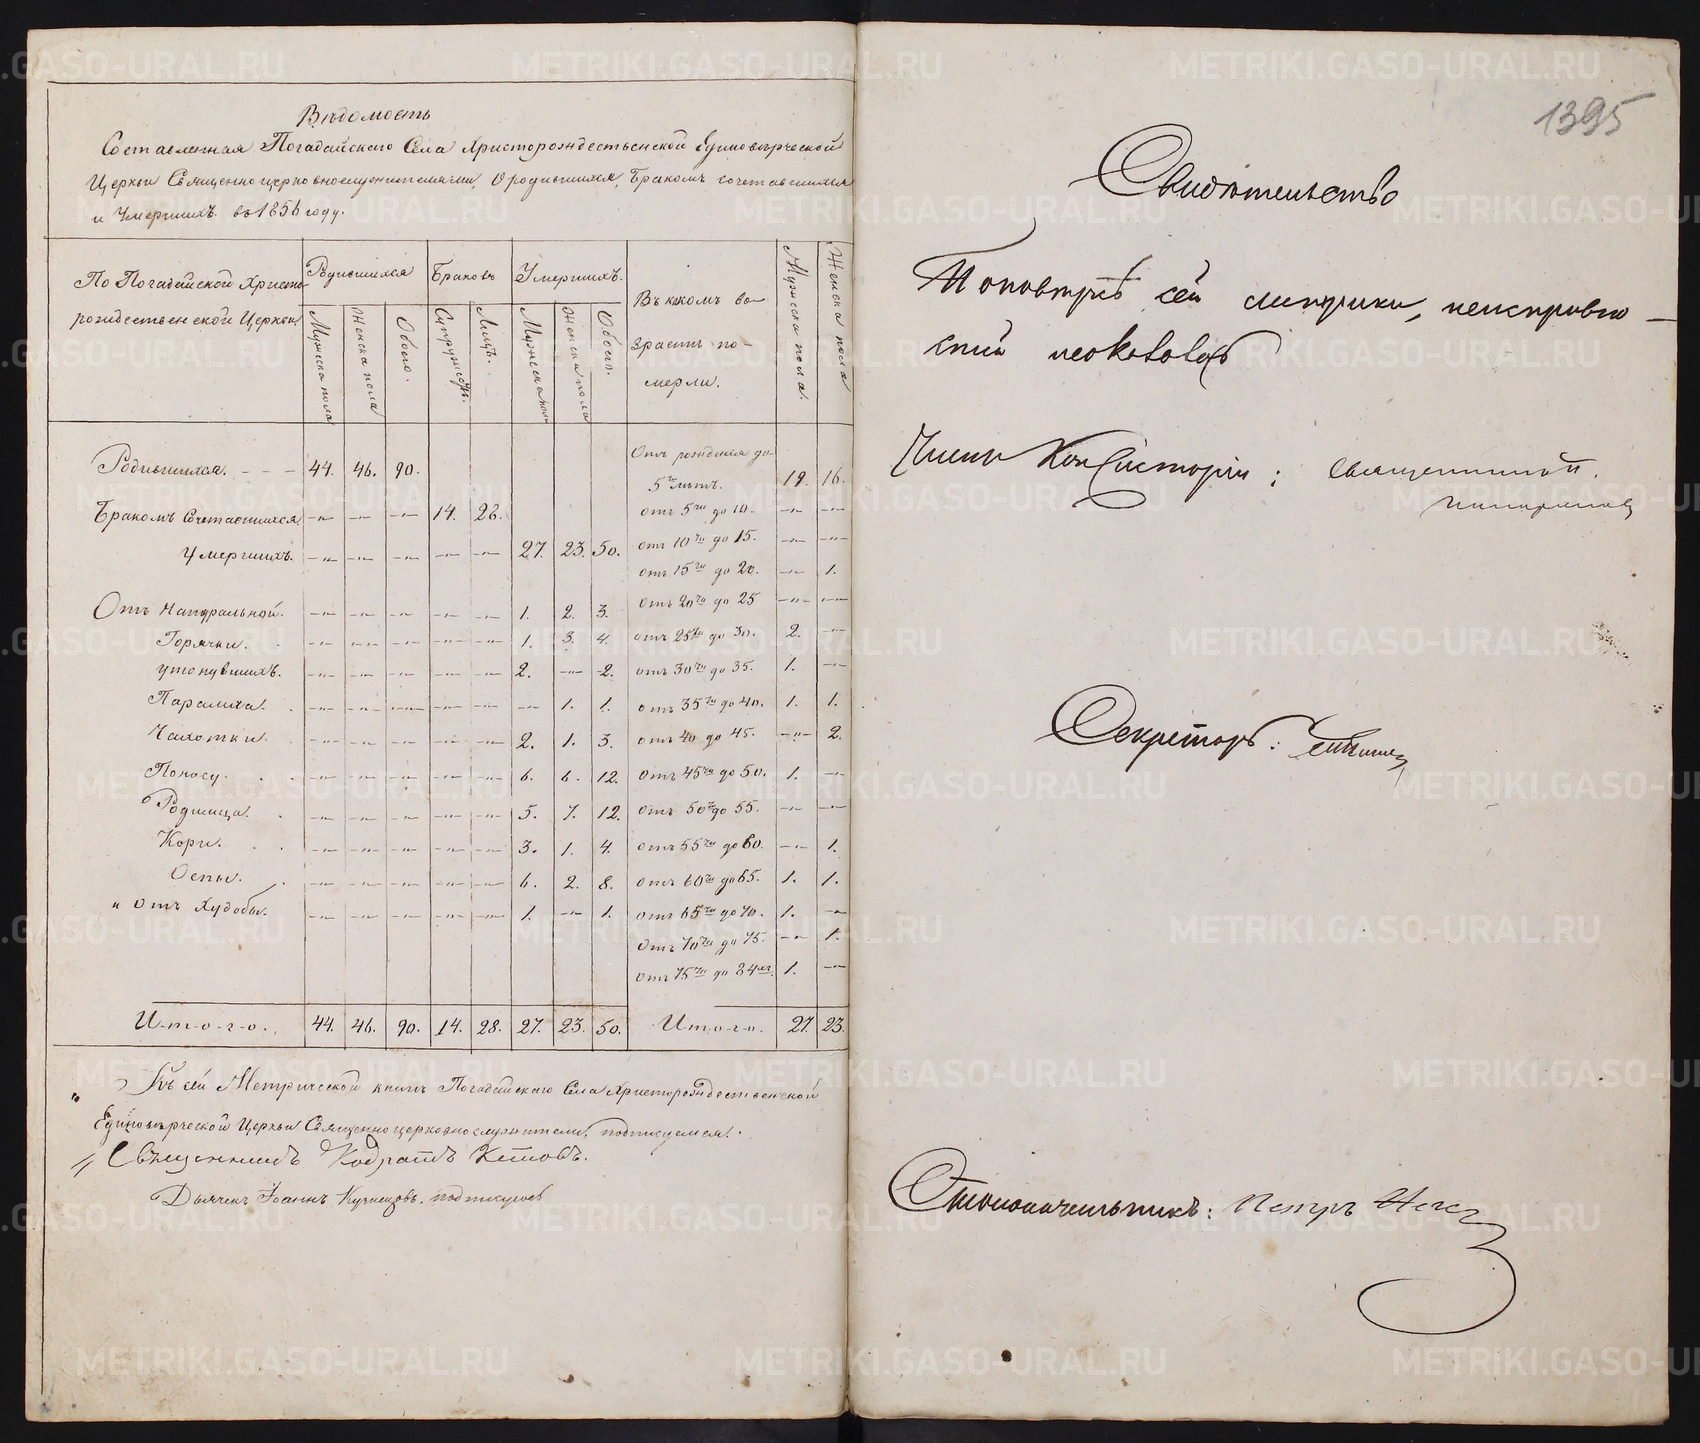 Ведомость
Составленная Погадайскаго Села Христорождественской Единоверческой
Церкви Священноцерковнослужителями, О родившихся, Бракомъ сочетавшихся
и Умершихъ въ 1856 году.
По Погадайской Христо-
рождественской Церкви.
Родившихся
Браковъ
Умершихъ.
Въ какомъ во-
зрасте по-
мерли.
Мужска пола.
Женска пола
Мужска пола
Женска пола
Обоего.
Супружествъ.
Лицъ.
Мужска пола
Женска пола
Обоего.
Родившихся. - - - 44. 46. 90.
Отъ рожденія до
5 летъ. 19. 16.
Бракомъ Сочетавшихся -"- -"- -"- 14. 28.
отъ 5ти до 10. -"- -"-
Умершихъ. -"- -"- -"- -"- -"- 27. 23. 50.
отъ 10ти до 15. -"- -"-
отъ 15ти до 20. -"- 1.
Отъ Натуральной. -"- -"- -"- -"- -"- 1. 2. 3.
отъ 20ти до 25 -"- -"-
Горячки. -"- -"- -"- -"- -"- 1. 3. 4.
отъ 25ти до 30. 2. -"-
утонувшихъ. -"- -"- -"- -"- -"- 2. -"- 2.
отъ 30ти до 35. 1. -"-
Паралича. -"- -"- -"- -"- -"- -"- 1. 1.
отъ 35ти до 40. 1. 1.
Чахотки. -"- -"- -"- -"- -"- 2. 1. 3.
отъ 40 до 45. -"- 2.
Поносу. -"- -"- -"- -"- -"- 6. 6. 12.
отъ 45ти до 50. 1. -"-
Родимца. -"- -"- -"- -"- -"- 5. 7. 12.
отъ 50ти до 55. -"- -"-
Кори. -"- -"- -"- -"- -"- 3. 1. 4.
отъ 55ти до 60. -"- 1.
Оспы. -"- -"- -"- -"- -"- 6. 2. 8.
отъ 60ти до 65. 1. 1.
" Отъ Худобы. -"- -"- -"- -"- -"- 1. -"- 1.
отъ 65ти до 70. 1. -"-
отъ 70ти до 75. -"- 1.
отъ 75ти до 84хъ. 1. -"-
И-т-о-г-о. 44. 46. 90. 14. 28. 27. 23. 50. И-т-о-г-о. 27. 23.
" Къ сей Метрической книге Погадайскаго Села Христорождественской
Единоверческой Церкви Священноцерковнослужители, подписуемся.
Священникъ Кодратъ
Дьячекъ Іоаннъ Кузнецовъ. подписуюсь
1395
Свидетельство
По поверке сей метрики, неисправно-
стей не оказалось
Членъ Консисторіи: Священникъ
Секретарь:
Столоначальникъ: Петръ
METRIKI.GASO-URAL.RU